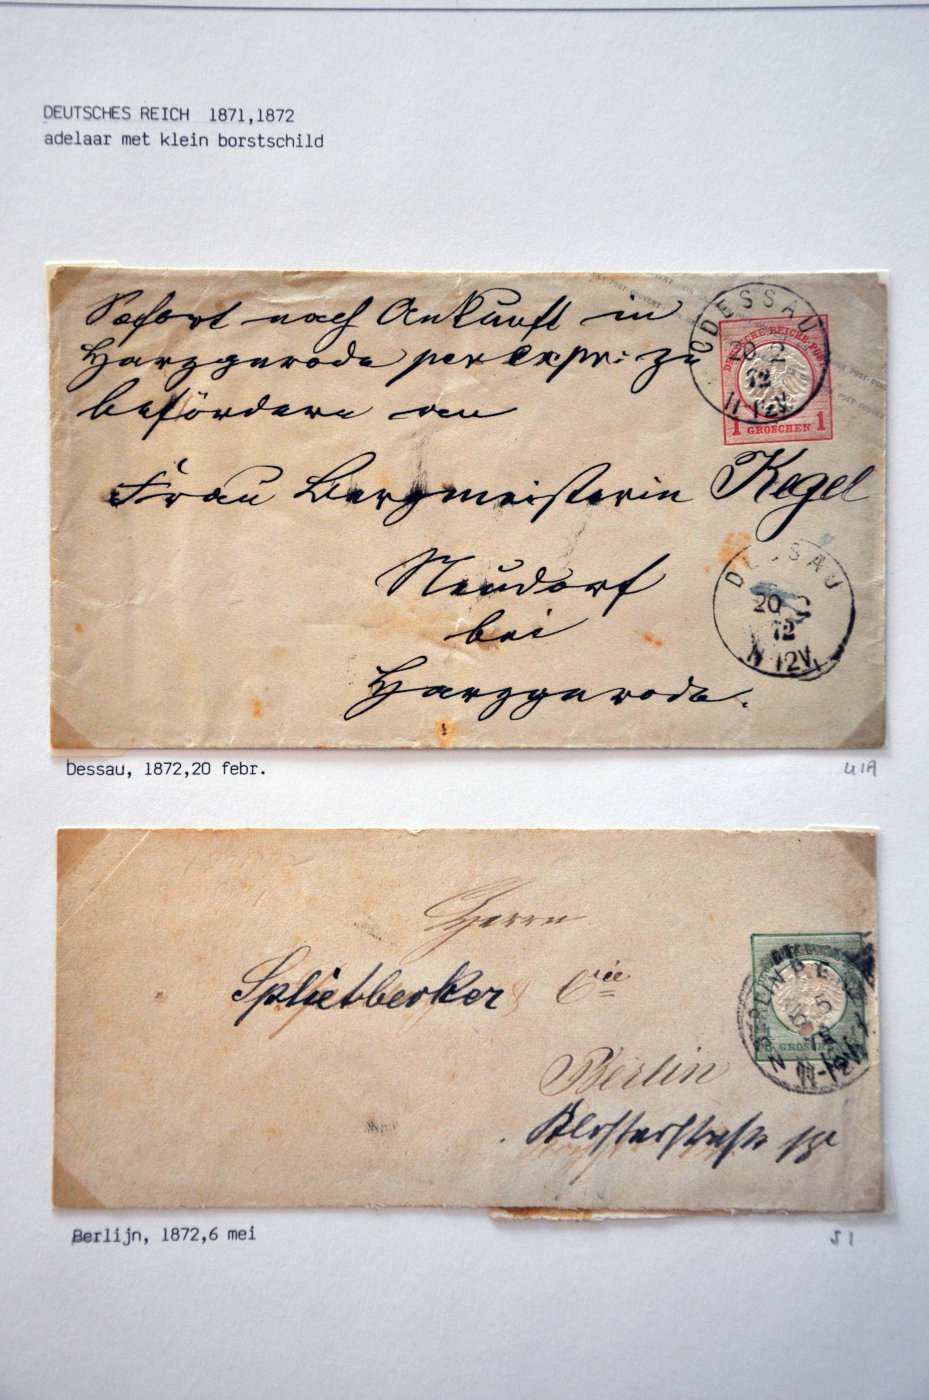 DEUTSCHES REICH 1871,1872
adelaar met klein borstschild
Sofort nach Ankunft in
Harzgerode per Expr: zu
befördern an
Frau Bergmeisterin Kegel
Neudorf
bei
Harzgerode.
DESSAU
20 2
72
11-12V.
DEUTSCHE REICHS-POST
1 GROSCHEN 1
DESSAU
20 2
72
11-12V.
Dessau, 1872,20 febr.
U1A
Herrn
Splietberker & Cie
Berlin
Klosterstraße
GROSCHEN
5
72
11-12V
Berlijn, 1872,6 mei
S1